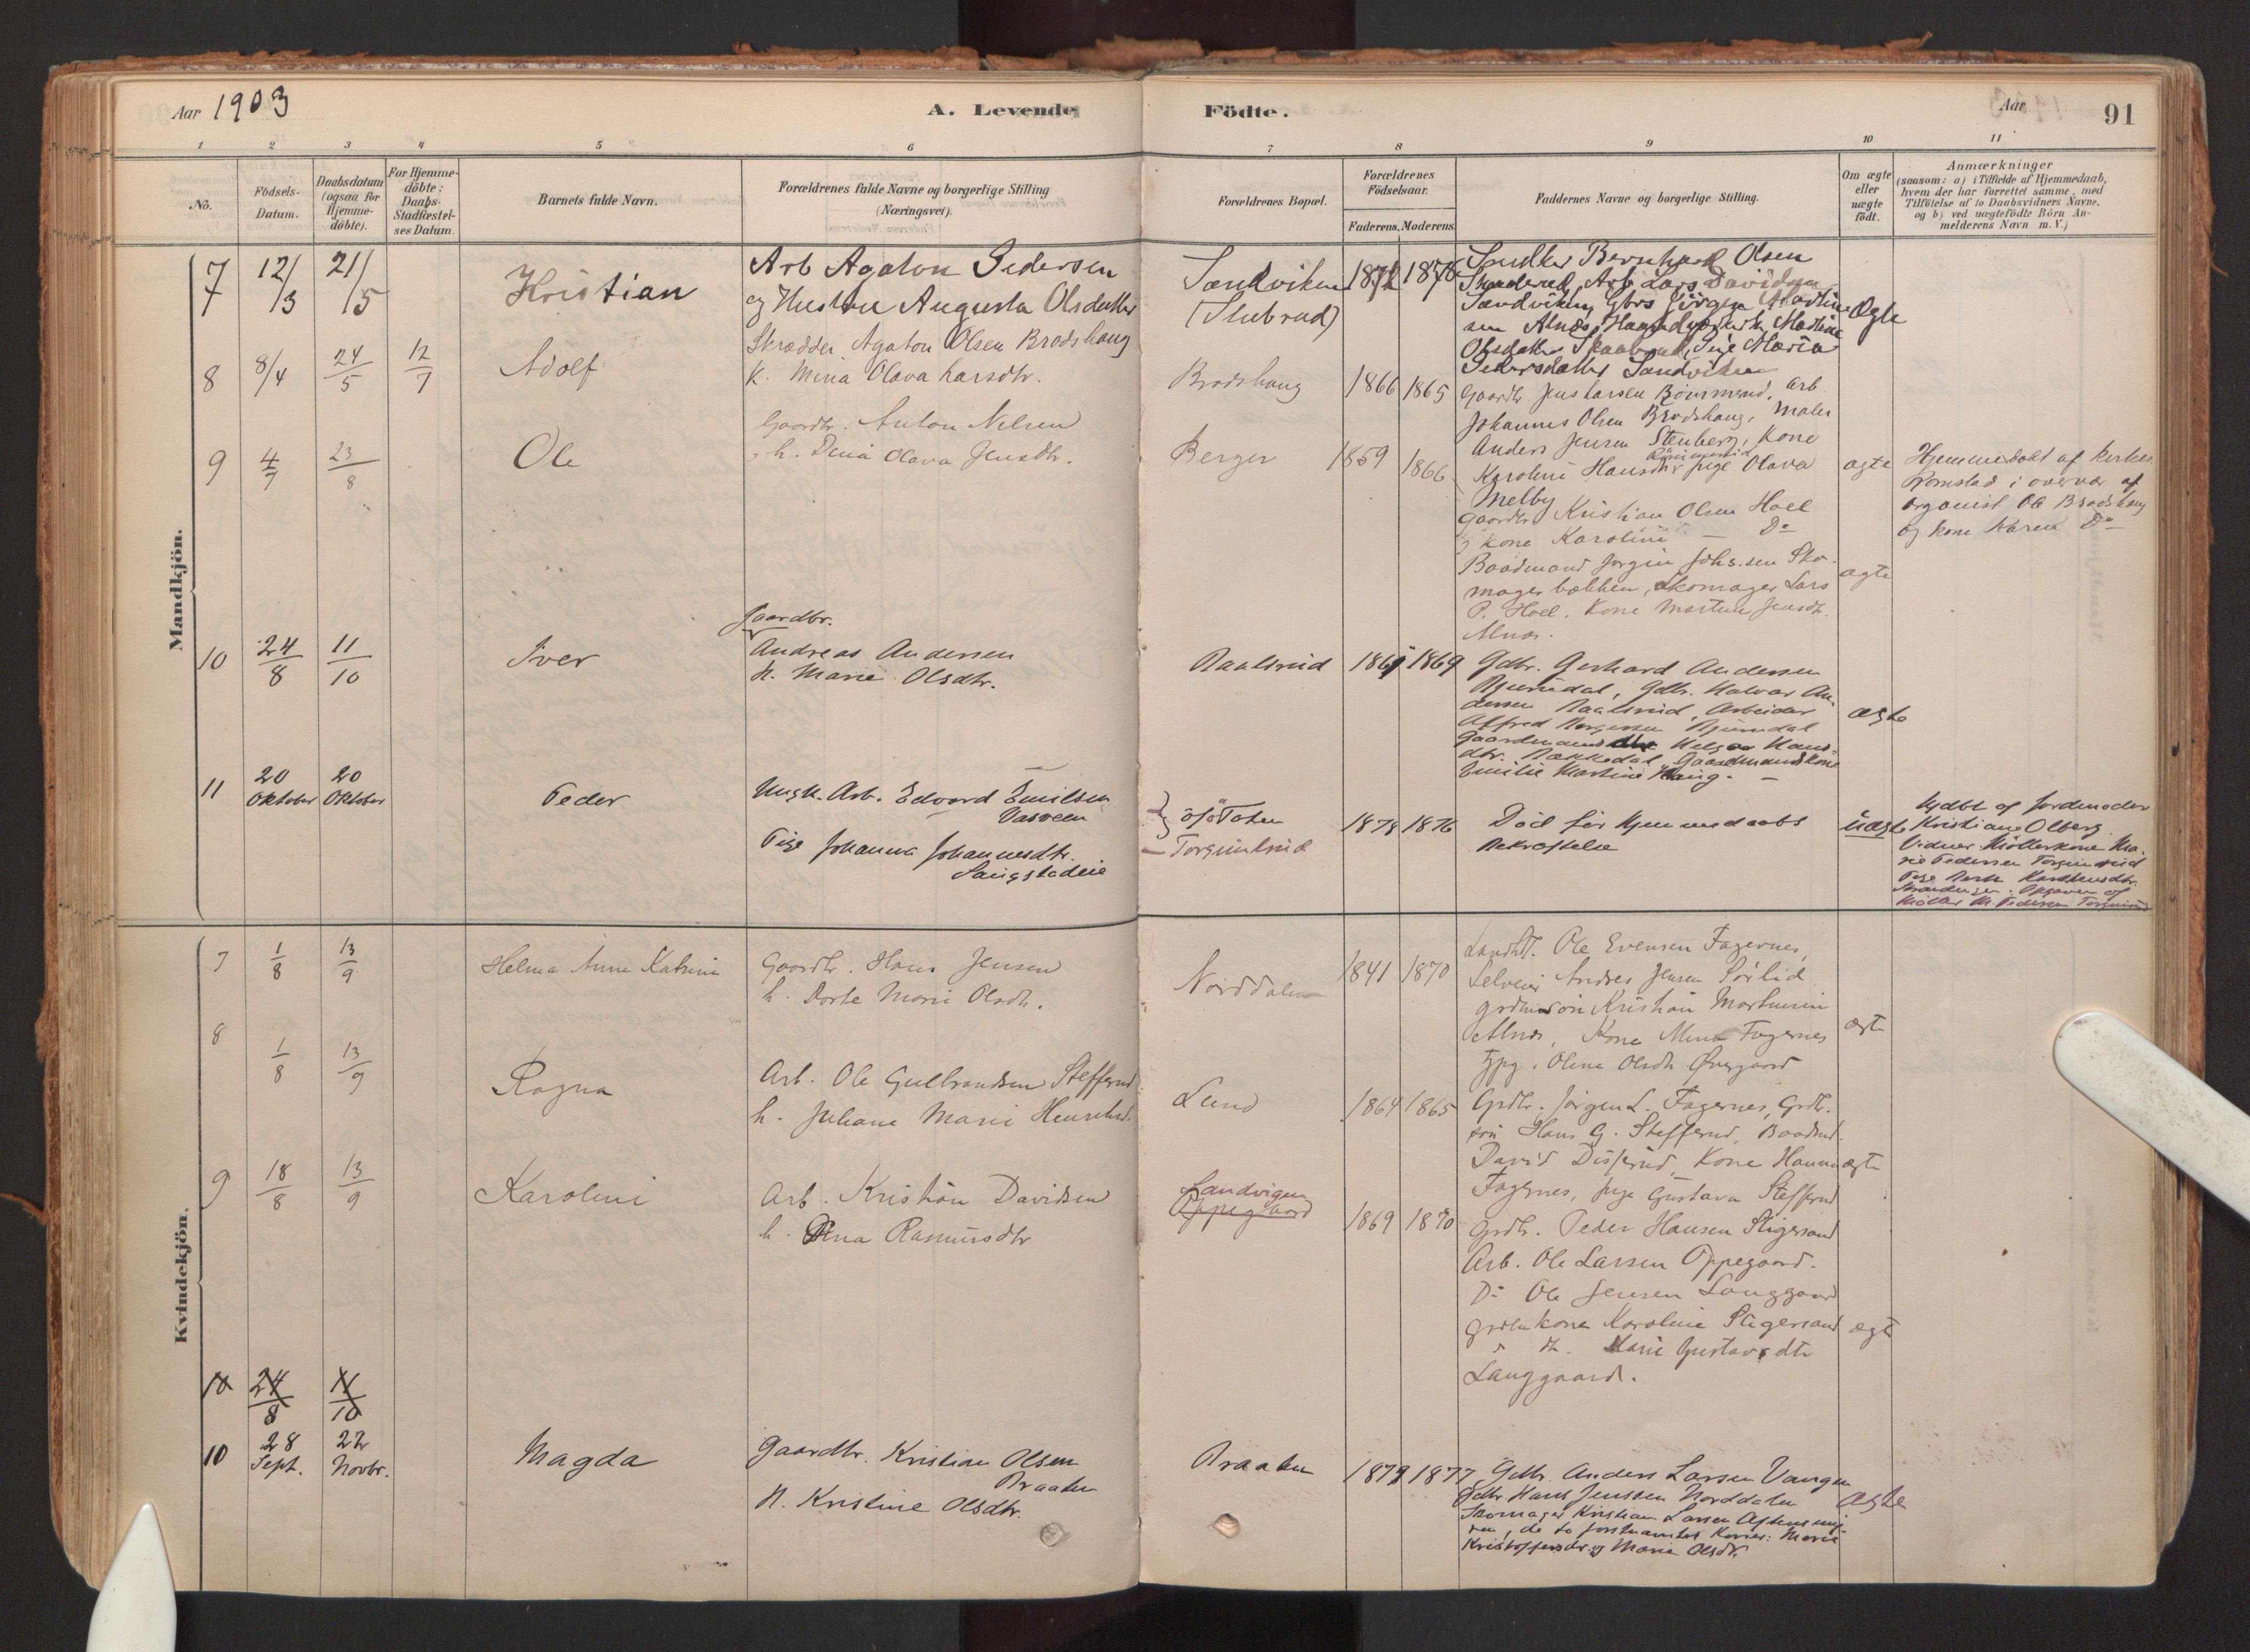 Aar 1903
A. Levende Födte.
Aar
91
1 2 3 4 5 6 7 8 9 10 11
No.
Födsels-
Datum.
Daabsdatum
(ogsaa for
Hjemme-
döbte).
For Hjemme-
döbte:
Daabs-
Stadfæstel-
ses Datum.
Barnets fulde Navn.
Forældrenes fulde Navne og borgerlige Stilling
(Næringsvei).
Forældrenes Bopæl.
Forældrenes
Födselsaar.
Faderens. Moderens.
Faddernes Navne og borgerlige Stilling.
Om ægte
eller
uægte
födt.
Anmærkninger
(saasom: a) i Tilfælde af Hjemmedaab,
hvem der har forrettet samme, med
Tilföielse af to Daabsvidners Navne,
og b) ved uægtefödte Börn An-
melderens Navn m. V.)
Mandkjön.
7 12/3 21/5
Kristian
Arb Agaton Pedersen
og Hustru Augusta Olsdatter
Sandviken
(Slubrud)
1878
Bernhard Olsen
Arb Lars Davidsen
Sandviken, Gbrs Jörgen
Alnæs,
Olsdatter Pige Maria
Pedersdatter Sandviken
Ægte
8 8/4 24/5 12/7
Adolf
Skrædder Agaton Olsen Brodshaug
k. Mina Olava Larsdtr.
Brodshaug
1866 1865
Gaardbr. Jens Larsen Arb.
Johannes Olsen Brodshaug, Maler
Anders Jensen Stenberg, Kone
Karoline Hansdtr pige Olava
Melby
ægte
9 4/7 23/8
Ole
Gaardbr. Anton Nilsen
h. Dina Olava Jensdtr.
Berger
1859 1866
Gaardbr Kristian Olsen Hoel
kone Karoline — Do
Baadmand Jörgen Johs.sen Sko-
magerbakken, Skomager Lars
P. Hoel. Kone Martine Jensdtr.
Alnæs.
ægte
Hjemmedöbt af Kirkes.
Tromstad i overvær af
organist Ole Brodshaug
og kone Karen Do
10 24/8 11/10
Iver
Gaardbr.
Andreas Andersen
H. Marie Olsdtr.
Raalsrud
1869
Gdbr. Gerhard Andersen
Bjurudal, Gdbr. Halvor An-
dersen Raalsrud, Arbeider
Alfred Bjurudal
Gaardmands Helga Hans-
dtr. Gaardmandskone
Emilie Martine Haug.
ægte
11 20 Oktober 20 Oktober
Peder
Ungk. Arb. Edvard Emilsen
Pige Johanna Johannesdtr.
Ø. Toten
Torgunrud
1878 1876
Död för hjemmedaabs
Bekræftelse
uægte
Hjdbt af Jordmoder
Kristiane Olberg
Vidner: Möllerkone Ma-
rie Pedersen Torgunrud
Pige
Möller M. Pedersen
Kvindekjön.
7 1/8 13/9
Helma Anne Katrine
Gaardbr. Hans Jensen
h. Dorte Marie Olsdtr.
Norddalen
1841 1870
Landhdl. Ole Evensen Fagernes,
Selveier Andres Jensen Sörlid
Kristian
Alnæs, Kone Mina Fagernes
Oline Olsdtr Övergaard
ægte
8 1/8 13/9
Ragna
Arb. Ole Gulbrandsen Stefferud
h. Juliane Marie
Lund
1864 1865
Grdbr. Jörgen L. Fagernes, Grdbr.
sön Hans G. Stefferud, Baadmd.
David Disserud, Kone Hanna
Fagernes, pige Gustava Stefferud
ægte
9 18/8 13/9
Karoline
Arb. Kristian Davidsen
h. Dina Rasmusdtr
Sandvigen
Oppegaard
1869 1870
Grdbr. Peder Hansen Stigersand
Arb. Ole Larsen Oppegaard.
Do Ole Jensen Langgaard
kone Karoline Stigersand
Marie Gustavsdtr
Langgaard.
ægte
10 24/8 11/10
10 28 Sept. 22 Novbr.
Magda
Gaardbr. Kristian Olsen
Braaten
H. Kristine Olsdtr.
Braaten
1877
Gdbr. Anders Larsen Vangen
Gdbr. Hans Jenssen Norddalen
Skomager Kristian Larsen
de to förstnævntes Koner: Marie
Kristoffersdtr. og Marie Olsdtr.
ægte